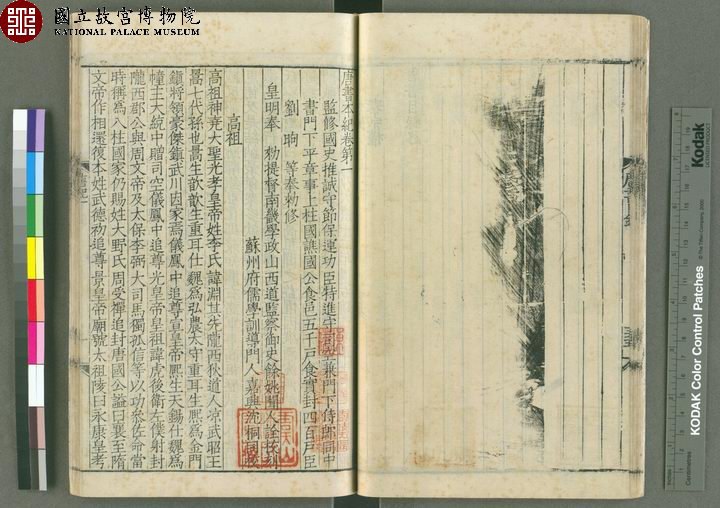 國立故宮博物院
NATIONAL PALACE MUSEUM
唐書本紀卷第一
監修國史推誠守節保運功臣特進守司空兼門下侍郎同中
書門下平章事上柱國譙國公食邑五千戶食實封四百戶臣
劉昫 等奉勑修
皇明奉 勑提督南畿學政山西道監察御史餘姚聞人詮校刻
蘇州府儒學訓導門人嘉興沈桐同校
高祖
高祖神堯大聖光孝皇帝姓李氏諱淵其先隴西狄道人涼武昭王
暠七代孫也暠生歆歆生重耳仕魏爲弘農太守重耳生熙爲金門
鎮將領豪傑鎮武川因家焉儀鳳中追尊宣皇帝熙生天錫仕魏爲
幢主大統中贈司空儀鳳中追尊光皇帝皇祖諱虎後衛左僕射封
隴西郡公與周文帝及太保李弼大司馬獨孤信等以功參佐命當
時稱爲八柱國家仍賜姓大野氏周受禪追封唐國公謚曰襄至隋
文帝作相還復本姓武德初追尊景皇帝廟號太祖陵曰永康皇考
Kodak
LICENSED PRODUCT
© The Tiffen Company, 2000
KODAK Color Control Patches
Centimetres